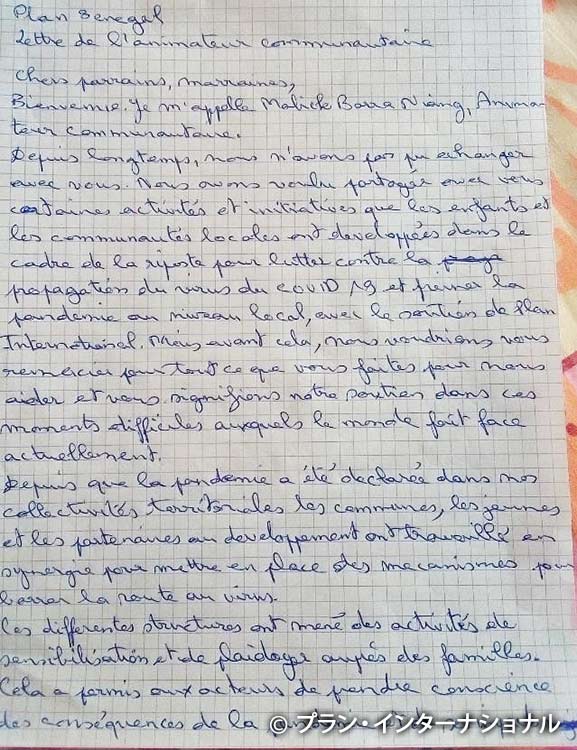 Plan Senegal
Lettre de l'animateur communautaire
Chers parrains, marraines,
Bienvenue. Je m'appelle Malick Barra Niang, Anima-
teur communautaire.
Depuis longtemps, nous n'avons pas pu echanger
avec vous. Nous avons voulu partager avec vous
certaines activités et initiatives que les enfants et
les communautés locales ont developpées dans le
cadre de la riposte pour lutter contre la
propagation du virus du COVID 19 et freiner la
pandemie au niveau local, avec le soutien de Plan
International. Mais avant cela, nous voudrions vous
remercier pour tout ce que vous faites pour nous
aider et vous signifions notre soutien dans ces
moments difficiles auxquels le monde fait face
actuellement.
Depuis que la pandemie a été declarée dans nos
collectivités territoriales les communes, les jeunes
et les partenaires au developpement ont travaillé en
synergie pour mettre en place des mecanismes pour
barrer la route au virus.
Les differentes structures ont mené des activités de
sensibilisation et de plaidoyer auprés des familles.
Cela a permis aux acteurs de prendre conscience
des conséquences de la
© プラン・インターナショナル